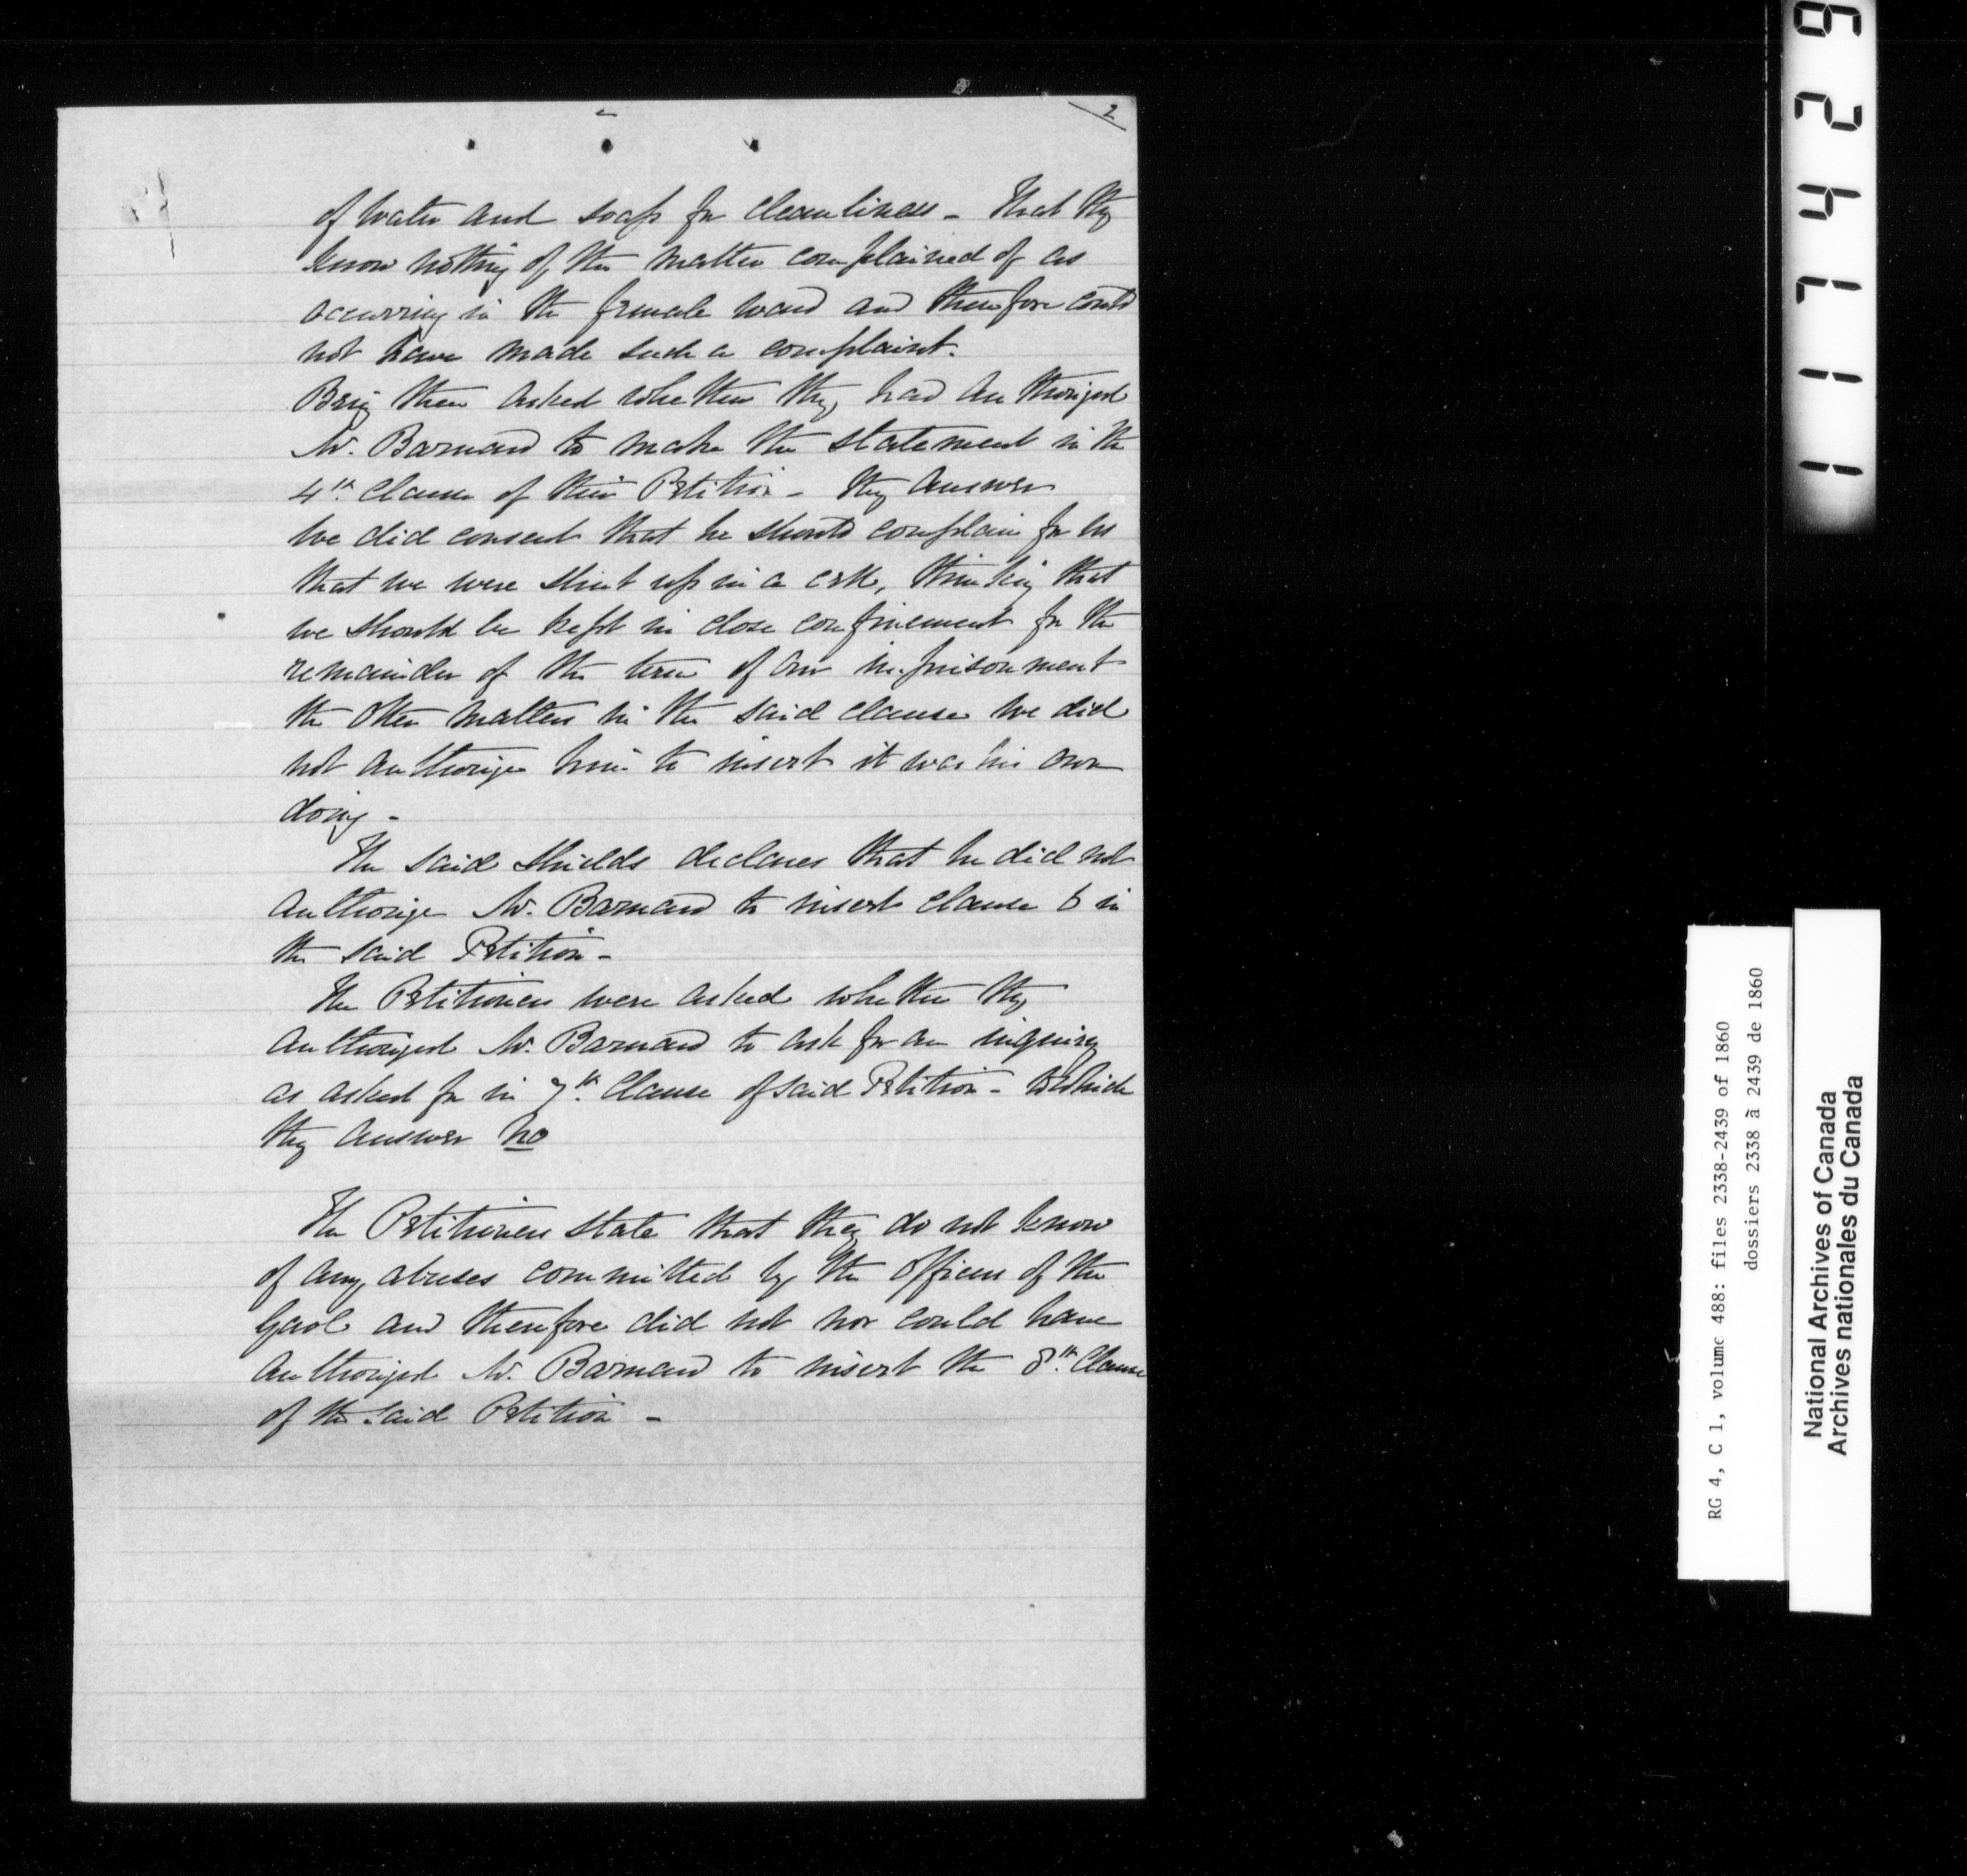 2
of water and soap for cleanliness - That they
know nothing of the matter complained of as
occurring in the female ward and therefore could
not have made such a complaint.
Being then asked whether they had authorized
Mr. Barnard to make the statement in the
4th Clause of their Petition - they answer
we did consent that he should complain for us
that we were shut up in a cell, thinking that
we should be kept in close confinement for the
remainder of the term of our imprisonment
the other matters in the said clause we did
not authorize him to insert it was his own
doing -
The said Shields declares that he did not
authorize Mr. Barnard to insert clause 6 in
the said Petition -
The Petitioners were asked whether they
authorized Mr. Barnard to ask for an inquiry
as asked for in 7th Clause of said Petition - to which
they answer no
The Petitioners state that they do not know
of any abuses committed by the officers of the
Gaol and therefore did not nor could have
authorized Mr. Barnard to insert the 8th Clause
of the said Petition -
117429
RG 4, C 1, volume 488: files 2338-2439 of 1860
dossiers 2338 à 2439 de 1860
National Archives of Canada
Archives nationales du Canada